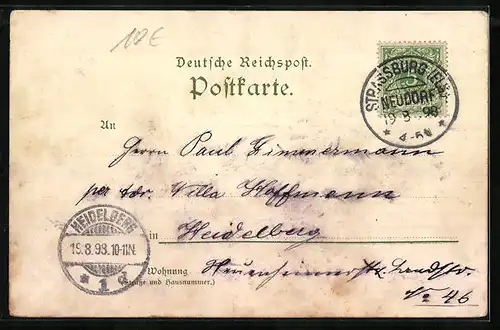 10€
Deutsche Reichspost.
Postkarte.
STRASSBURG (ELS.)
NEUDORF
19 8 98
4-5N
An
Herrn Paul Zimmermann
per Adr. Villa Hoffmann
in Heidelberg
Wohnung Neuenheimer Landstr.
(Straße und Hausnummer.)
No 46
HEIDELBERG
19.8.98.10-11N.
1 d